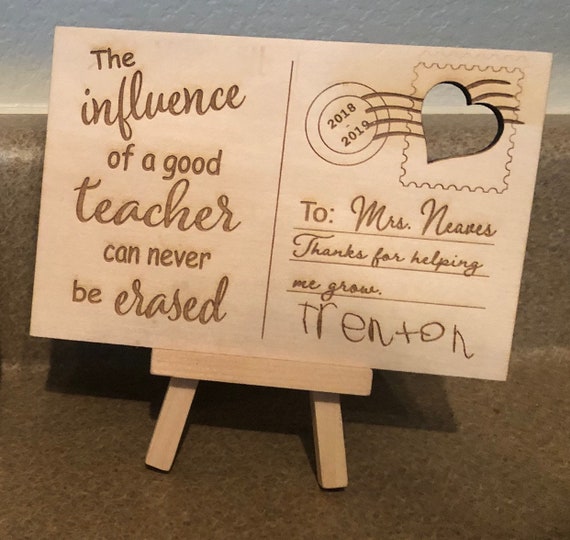 The
influence
of a good
teacher
can never
be erased
2018
-
2019
To: Mrs. Neaves
Thanks for helping
me grow.
Trenton